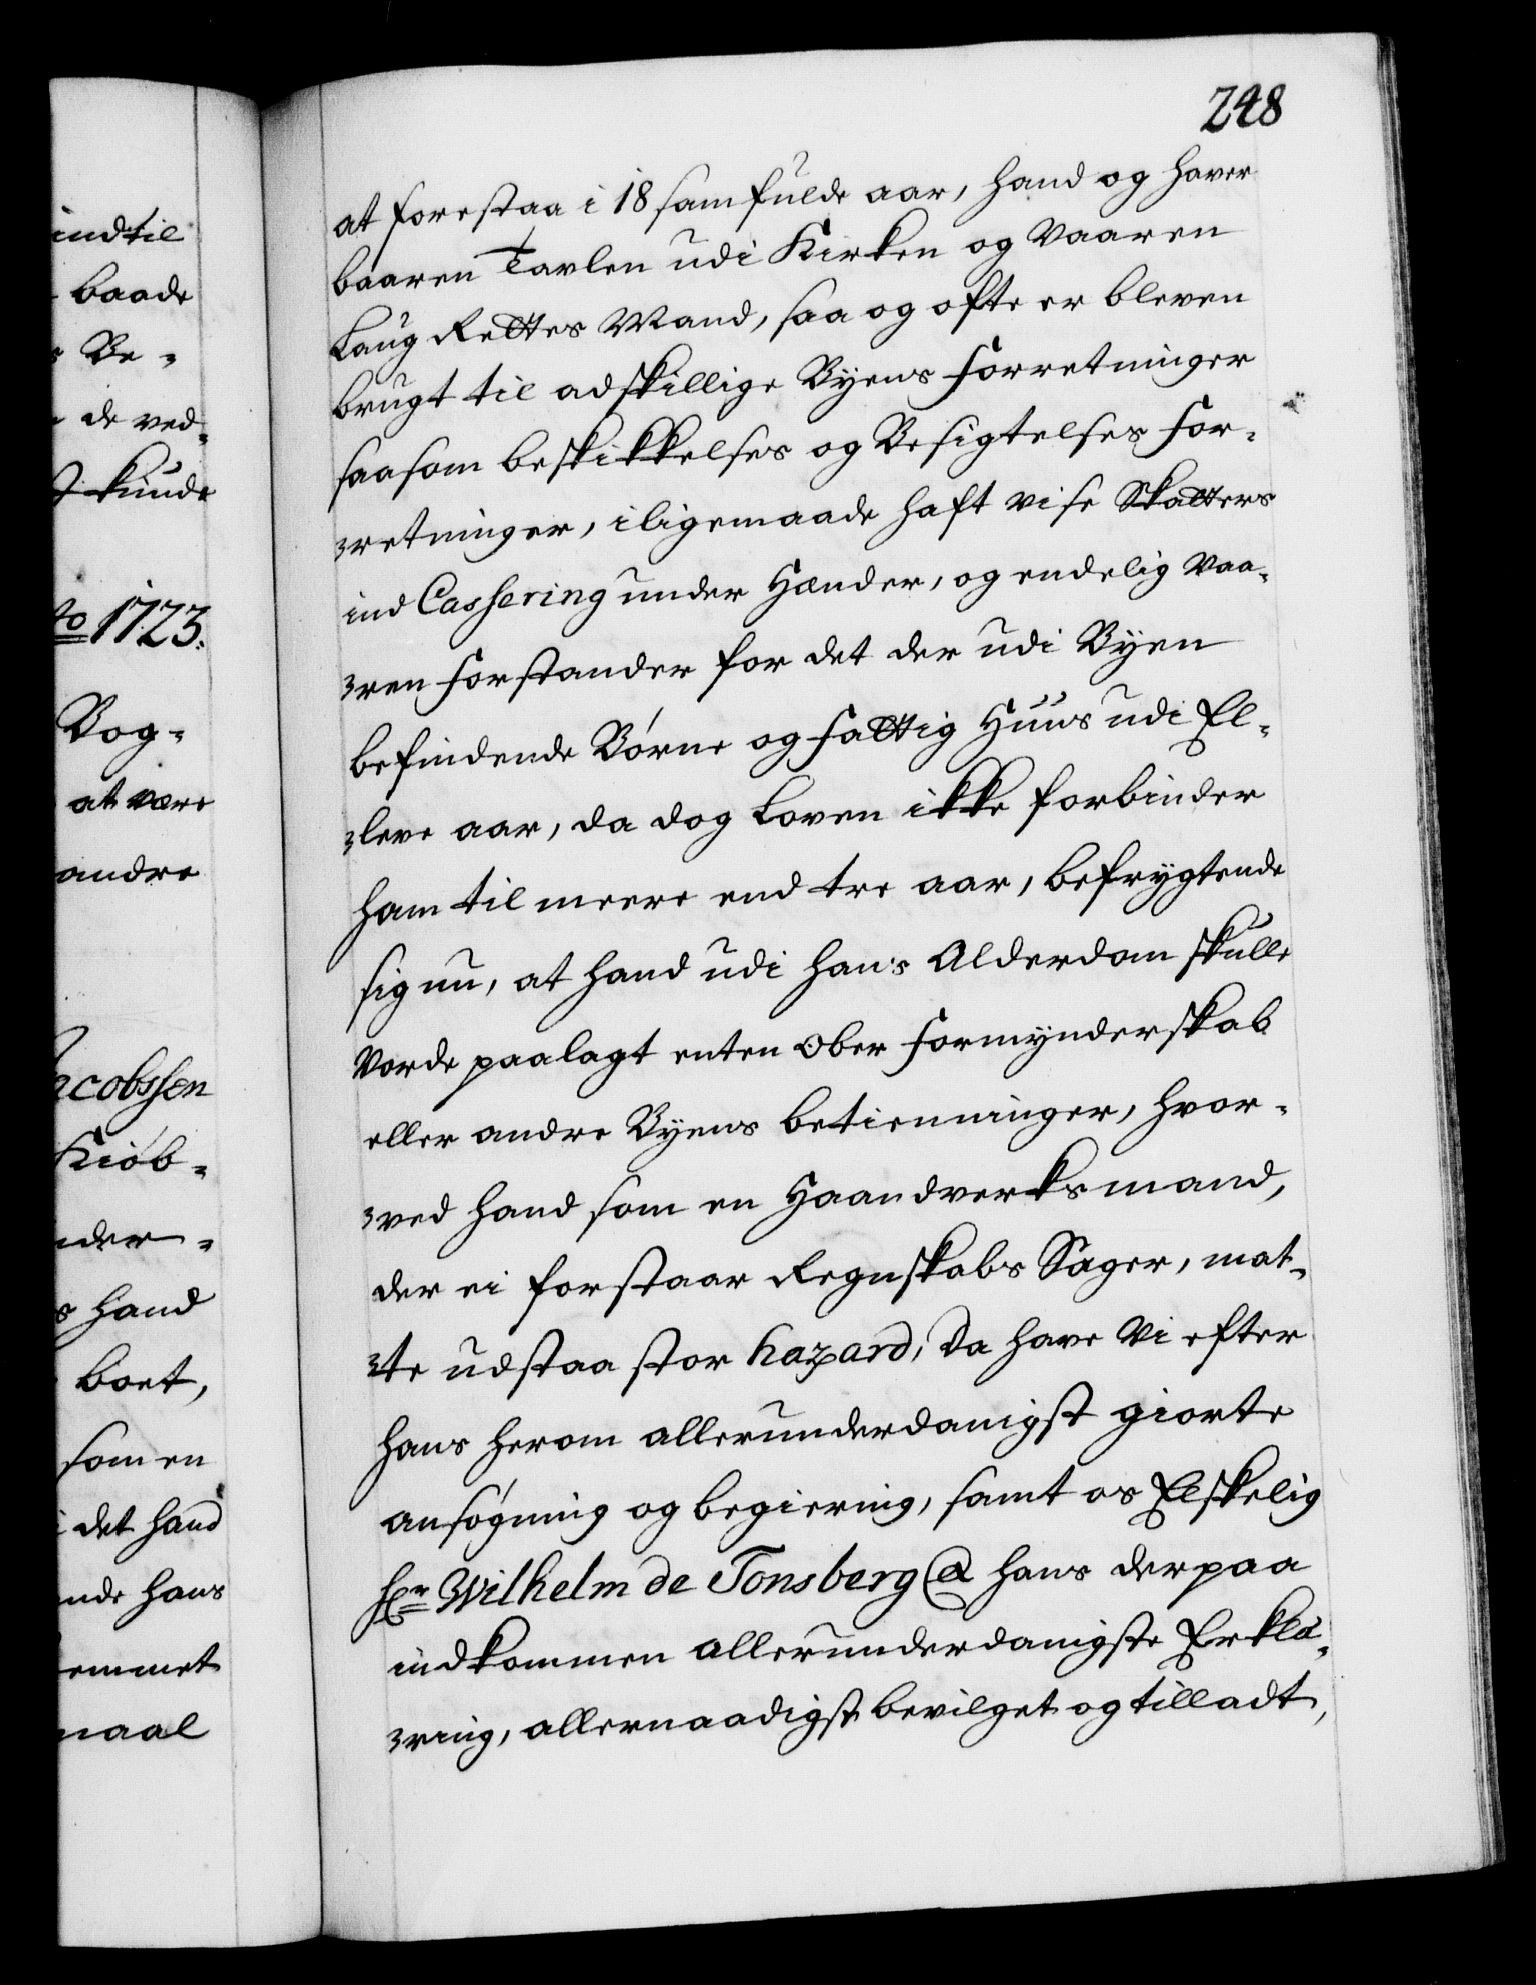 248
at forestaa i 18 samfulde aar, hand og haver
baaren Tavlen udi Kirken og vaaren
Laug Rettes Mand, saa og ofte er bleven
brugt til adskillige Byens Forretninger
saasom beskikkelses og Besigtelses For-
retninger, iligemaade haft visse Skatters
ind Cassering under Hænder, og endelig vaa-
ren Forstander for det der udi Byen
befindende Børne og Fattig Huus udi El-
leve aar, da dog Loven ikke forbinder
ham til meere end tre aar, befrygtende
sig nu, at hand udi hans Alderdom skulle
vorde paalagt enten Ober Formynderskab
eller andre Byens betienninger, hvor-
ved hand som en Haandverksmand,
der ei forstaar Regnskabs Sager, mat-
te udstaa stor hazard; da have Vi efter
hans herom allerunderdanigst giorte
ansøgning og begiering, samt os Elskelig
Hr Wilhelm de Tonsberg @ hans derpaa
indkommen allerunderdanigste Erklæ-
ring, allernaadigst bevilget og tilladt,
indtil
baade
Be-
de ved-
kunde
to 1723.
Bog-
at være
andre
acobssen
Kiøb-
nder-
hand
boet,
som en
det hand
nde hans
emmet
maal